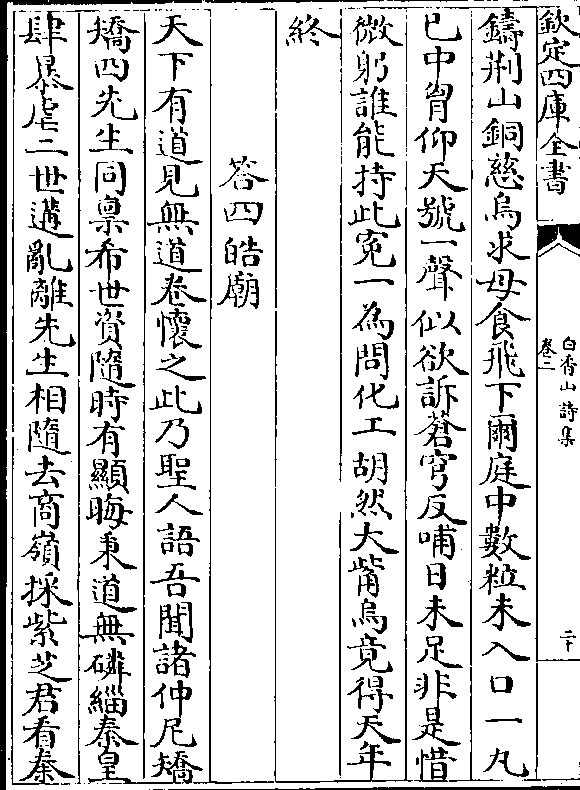 欽定四庫全書
白香山詩集
卷二
二十
鑄荆山銅慈烏求母食飛下爾庭中數粒未入口一丸
已中胷仰天號一聲似欲訴蒼穹反哺日未足非是惜
微躬誰能持此寃一為問化工胡然大觜烏竟得天年
終
答四皓廟
天下有道見無道卷懷之此乃聖人語吾聞諸仲尼矯
矯四先生同禀希世資隨時有顯晦秉道無磷緇秦皇
肆暴虐二世遘亂離先生相隨去商嶺採紫芝君看秦